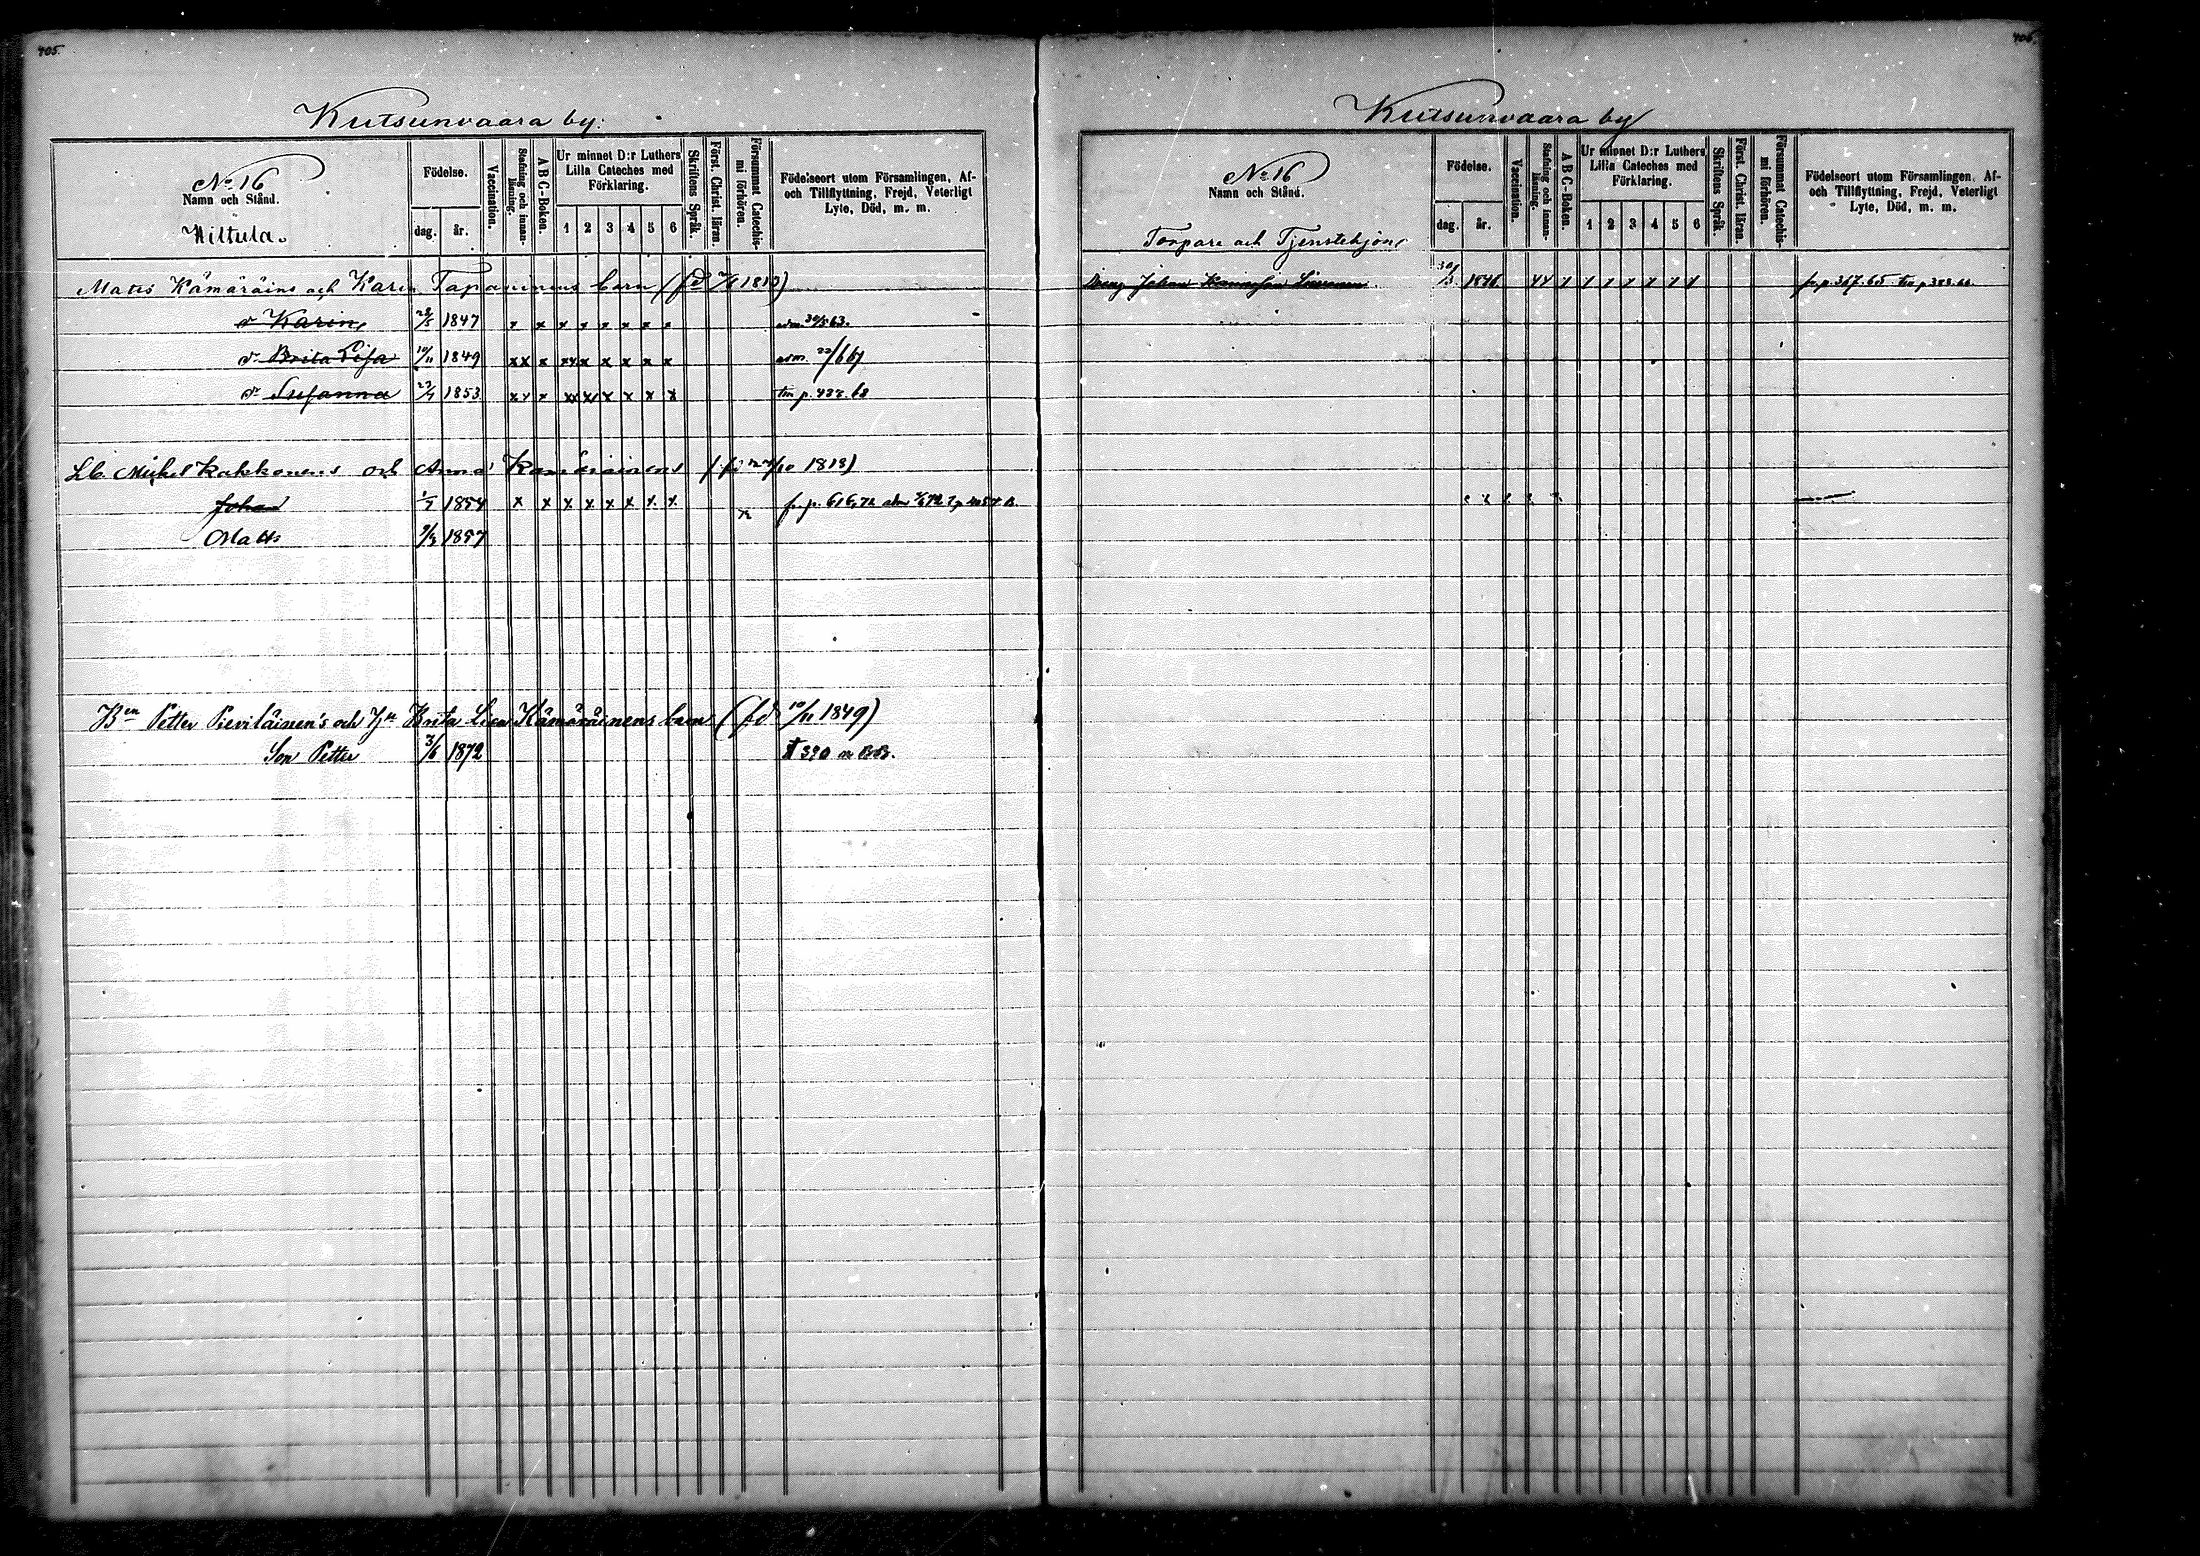 405.
Kutsunvaara by.
No 16
Namn och Stånd.
Födelse.
dag.
år.
Vaccination.
Stafning och innanläsning.
A B C-Boken.
Ur minnet D:r Luthers Lilla Cateches med Förklaring.
1 2 3 4 5 6
Skriftens Språk.
Först. Christ. läran.
Försummat Catechismi förhören.
Födelseort utom Församlingen, Af- och Tillflyttning, Frejd, Veterligt Lyte, Död, m. m.
Matts Kämäräins och Karin Tapaninens barn (fd 1813)
dr Karin 28/5 1847 x x x x x x x x 63.
dr Brita Lisa 10/11 1849 xx x xx x x x x x adm. 67
dr Susanna 23/7 1853 x x x xx x x x x x tm p. 68
Lb. Michel Kakkonens och Anna Kämäräinens 1818)
Johan 1854 x x x x x x x x x fr. p. 616,
Matts 1857
Ben Petter Pieviläinen's och Brita Lisa Kämäräinens barn (fd 10/11 1849)
Son Petter 3/6 1872 390
406.
Kutsunvaara by
No 16
Namn och Stånd.
Torpare och Tjenstehjon
Födelse.
dag.
år.
Vaccination.
Stafning och innanläsning.
A B C-Boken.
Ur minnet D:r Luthers Lilla Cateches med Förklaring.
1 2 3 4 5 6
Skriftens Språk.
Först. Christ. läran.
Försummat Catechismi förhören.
Födelseort utom Församlingen, Af- och Tillflyttning, Frejd, Veterligt Lyte, Död, m. m.
Dreng Johan 30/3 1846 fr. p. 367. 65